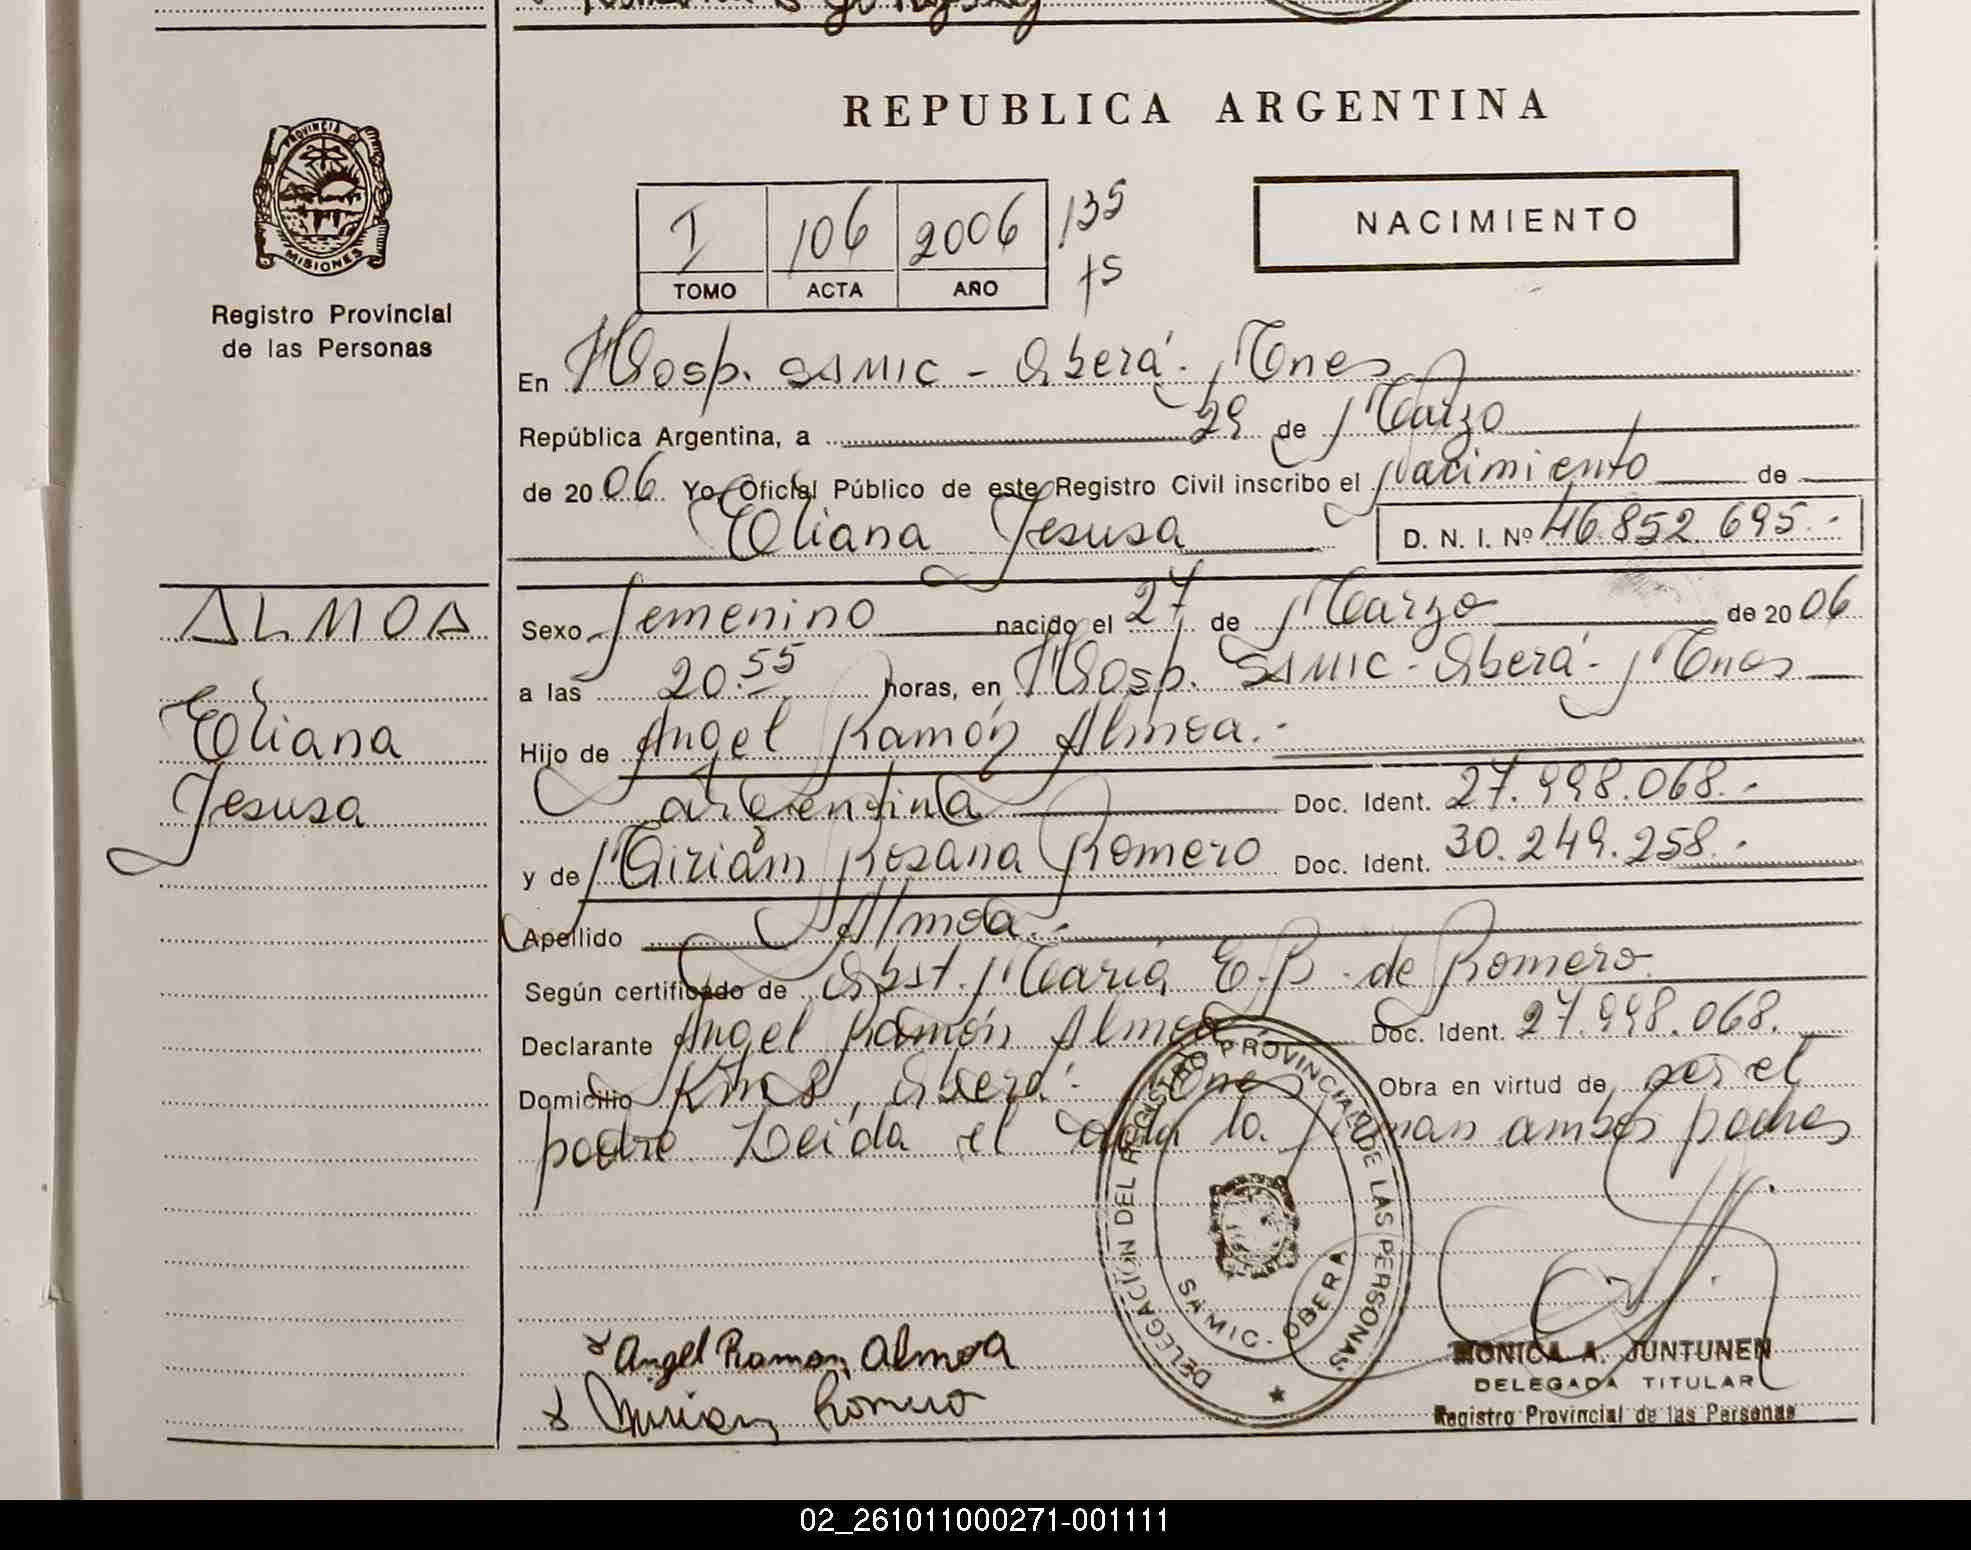 REPUBLICA ARGENTINA
PROVINCIA DE
MISIONES
Registro Provincial
de las Personas
I 106 2006 135
TOMO ACTA AÑO 75
NACIMIENTO
En Hosp. SAMIC - Oberá - Mnes
República Argentina, a 29 de Marzo
de 2006 Yo, Oficial Público de este Registro Civil inscribo el Nacimiento de
Eliana Jesusa D. N. I. Nº 46.852.695.-
ALMOA
Eliana
Jesusa
Sexo femenino nacido el 27 de Marzo de 2006
a las 20.55 horas, en Hosp. SAMIC - Oberá - Mnes
Hijo de Angel Ramón Almoa.-
argentina Doc. Ident. 27.998.068.-
y de Miriam Rosana Romero Doc. Ident. 30.249.258.-
Apellido Almoa.-
Según certificado de Obst. María E. B. de Romero
Declarante Angel Ramón Almoa.- Doc. Ident. 27.998.068.
Domicilio Km 8, Oberá - Mnes Obra en virtud de ser el
padre Leída el acta la firman ambos padres
DELEGACIÓN DEL REGISTRO PROVINCIAL DE LAS PERSONAS
SAMIC - OBERA
Angel Ramon Almoa
Mirian Romero
MONICA A. JUNTUNEN
DELEGADA TITULAR
Registro Provincial de las Personas
02_261011000271-001111